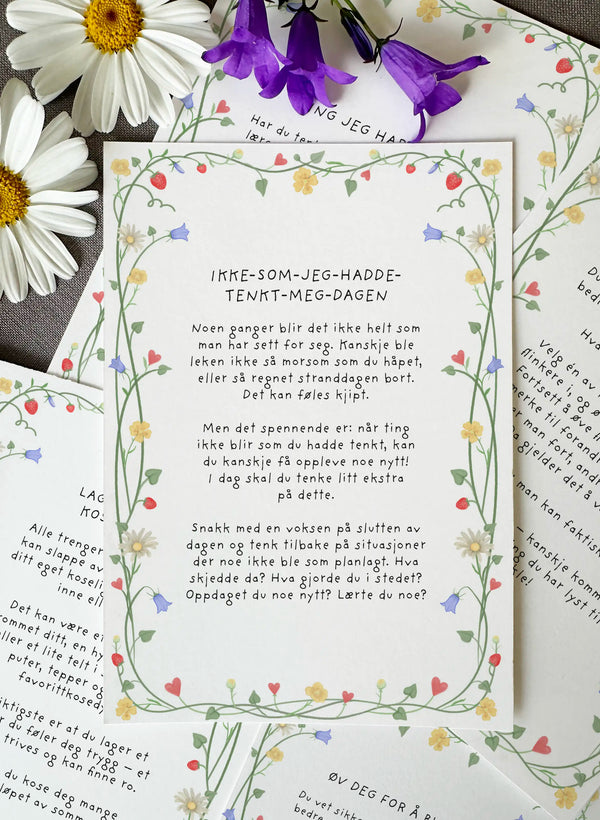 NG JEG HAR
Har du tenk
lære
IKKE-SOM-JEG-HADDE-
TENKT-MEG-DAGEN
Noen ganger blir det ikke helt som
man har sett for seg. Kanskje ble
leken ikke så morsom som du håpet,
eller så regnet stranddagen bort.
Det kan føles kjipt.
Men det spennende er: når ting
ikke blir som du hadde tenkt, kan
du kanskje få oppleve noe nytt!
I dag skal du tenke litt ekstra
på dette.
Snakk med en voksen på slutten av
dagen og tenk tilbake på situasjoner
der noe ikke ble som planlagt. Hva
skjedde da? Hva gjorde du i stedet?
Oppdaget du noe nytt? Lærte du noe?
LAG
KOS
Alle trenger
kan slappe av
ditt eget koselig
inne ell
Det kan være e
rommet ditt, en hy
eller et lite telt i s
puter, tepper og
favorittkosed
iktigste er at du lager et
r du føler deg trygg – et
trives og kan finne ro.
du kose deg mange
løpet av somm
Du
bedre
Hva
Velg én av
flinkere i, og ø
Fortsett å øve
merke til forandr
er man fort, andr
a gjelder det å v
man kan faktisk
– kanskje komm
du har lyst til
kle!
ØV DEG FOR Å BL
Du vet sikke
bedre